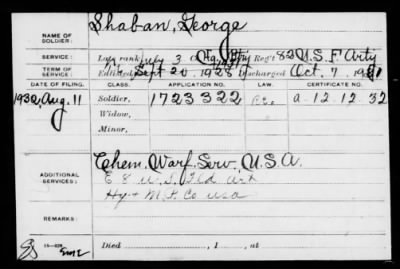 NAME OF SOLDIER: Shaban, George
SERVICE: Late rank July 3 Regt 82 U.S.F. Arty
TERM OF SERVICE: Enlisted Sept 20, 1928 Discharged Oct. 7, 1931
DATE OF FILING. CLASS. APPLICATION NO. LAW. CERTIFICATE NO.
1932, Aug. 11 Soldier, 1723322 a-12 12 32
Widow,
Minor,
ADDITIONAL SERVICES: Chem. Warf. Serv., U.S.A.
E 8 U.S. Fld Art
Hq + M.P. Co USA
REMARKS:
Died , 1 , at